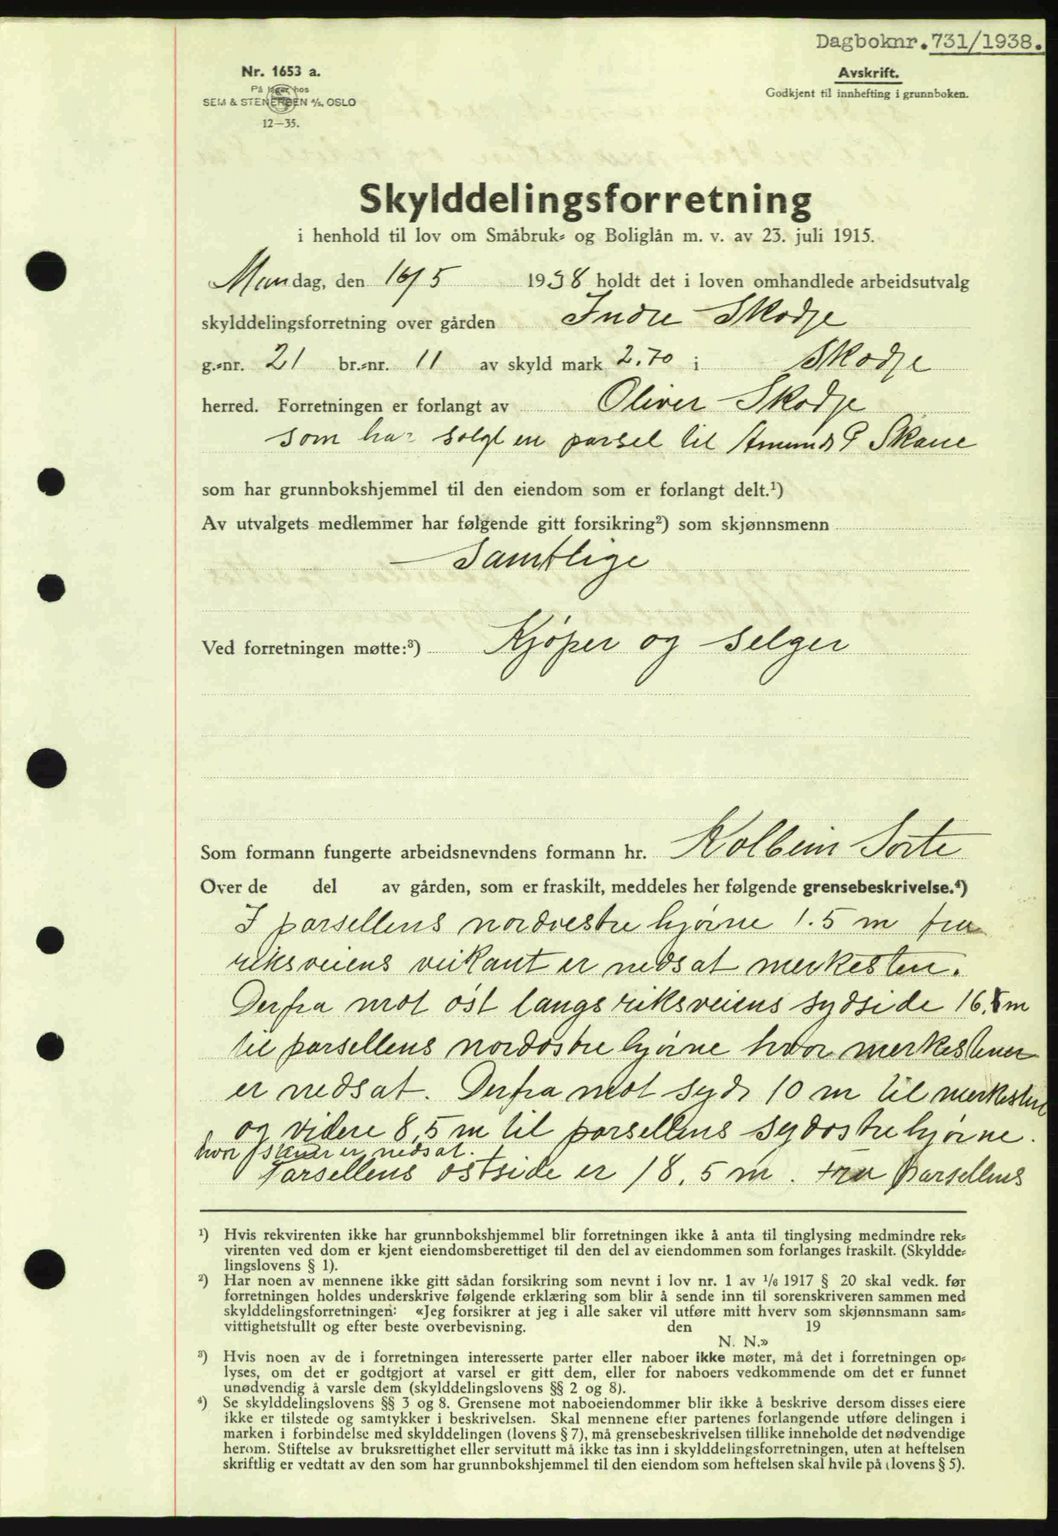 Dagboknr. 731/1938.
Nr. 1653 a.
På lager hos
SEM & STENERSEN A/S, OSLO
12—35.
Avskrift.
Godkjent til innhefting i grunnboken.
Skylddelingsforretning
i henhold til lov om Småbruk- og Boliglån m. v. av 23. juli 1915.
Mandag, den 16/5 1938 holdt det i loven omhandlede arbeidsutvalg
skylddelingsforretning over gården Indre Skodje
g.-nr. 21 br.-nr. 11 av skyld mark 2.70 i Skodje
herred. Forretningen er forlangt av Oliver Skodje
som har solgt en parsel til Amund P Skaue
som har grunnbokshjemmel til den eiendom som er forlangt delt.¹)
Av utvalgets medlemmer har følgende gitt forsikring²) som skjønnsmenn
Samtlige
Ved forretningen møtte:³) Kjøper og selger
Som formann fungerte arbeidsnevndens formann hr. Kolbein Sorte
Over de del av gården, som er fraskilt, meddeles her følgende grensebeskrivelse.⁴)
I parsellens nordvestre hjørne 1.5 m fra
riksveiens veikant er nedsat merkesten.
Derfra mot øst langs riksveiens sydside 16,5 m
til parsellens nordøstre hjørne hvor merkestener
er nedsat. Derfra mot syd 10 m til merkesten
og videre 8,5 m til parsellens sydøstre hjørne.
hvor stener er nedsat.
Parsellens østside er 18,5 m. Fra parsellens
¹) Hvis rekvirenten ikke har grunnbokshjemmel blir forretningen ikke å anta til tinglysing medmindre rek-
virenten ved dom er kjent eiendomsberettiget til den del av eiendommen som forlanges fraskilt. (Skyldde-
lingslovens § 1).
²) Har noen av mennene ikke gitt sådan forsikring som nevnt i lov nr. 1 av 1/6 1917 § 20 skal vedk. før
forretningen holdes underskrive følgende erklæring som blir å sende inn til sorenskriveren sammen med
skylddelingsforretningen: «Jeg forsikrer at jeg i alle saker vil utføre mitt hverv som skjønnsmann sam-
vittighetsfullt og efter beste overbevisning. den 19
N. N.»
³) Hvis noen av de i forretningen interesserte parter eller naboer ikke møter, må det i forretningen op-
lyses, om det er godtgjort at varsel er gitt dem, eller for naboers vedkommende om det er funnet
unødvendig å varsle dem (skylddelingslovens §§ 2 og 8).
⁴) Se skylddelingslovens §§ 3 og 8. Grensene mot naboeiendommer blir ikke å beskrive dersom disses eiere
ikke er tilstede og samtykker i beskrivelsen. Skal mennene efter partenes forlangende utføre delingen i
marken i forbindelse med skylddelingen (lovens § 7), må grensebeskrivelsen tillike inneholde det nødvendige
herom. Stiftelse av bruksrettighet eller servitutt må ikke tas inn i skylddelingsforretningen, uten at heftelsen
skriftlig er vedtatt av den som har grunnbokshjemmel til den eiendom som heftelsen skal hvile på (lovens § 5).